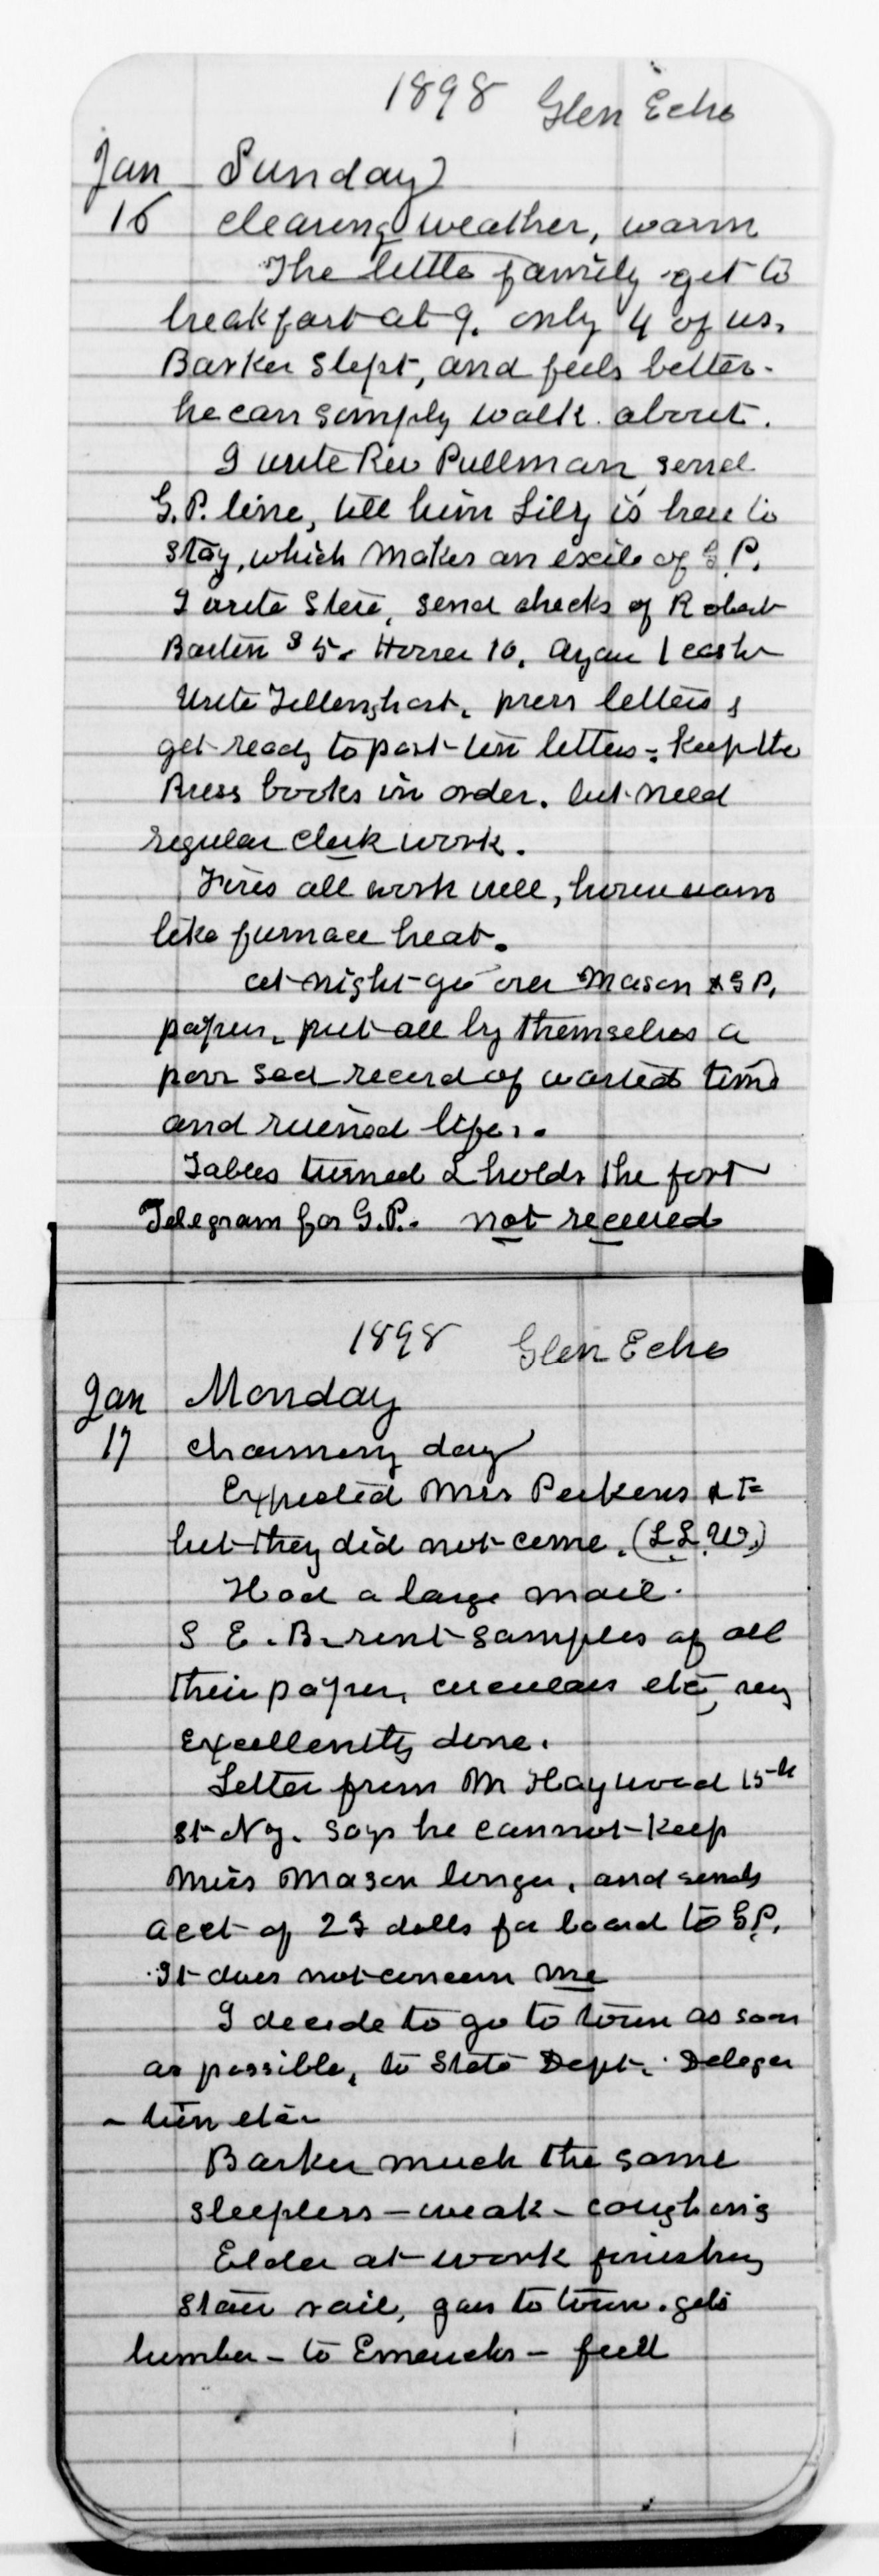 1898 Glen Echo
Jan Sunday
16 clearing weather, warm
The little family get to
breakfast at 9. only 4 of us.
Barker slept, and feels better.
he can simply walk about.
I write Rev Pullman send
G.P. line, tell him Lily is here to
stay, which makes an exile of G.P.
I write Steve, send checks of Robert
Barton $5. 10, 1 cash
Write Tillinghast, press letters &
get ready to post ten letters - keep the
Press books in order. but need
regular clerk work.
Fires all work well, house warm
like furnace heat.
at night go over Mason & G P.
papers, put all by themselves a
poor sad record of wasted time
and ruined life.
Tables turned & holds the fort
Telegram for G.P. not received
1898 Glen Echo
Jan Monday
17 charming day
Expected Mrs Perkens &
but they did not come. (L.L.W.)
Had a large mail.
S E. B. sent samples of all
their paper, circulars etc, very
excellently done.
Letter from Mr Haywood 15th
St N.Y. says he cannot keep
Miss Mason longer, and sends
acct of 23 dolls for board to G.P.
It does not concern me
I decide to go to town as soon
as possible, to State Dept. Delega
- tion etc
Barker much the same
sleepless - weak - coughing
Elder at work finishing
stair rail, goes to town. gets
lumber - to full